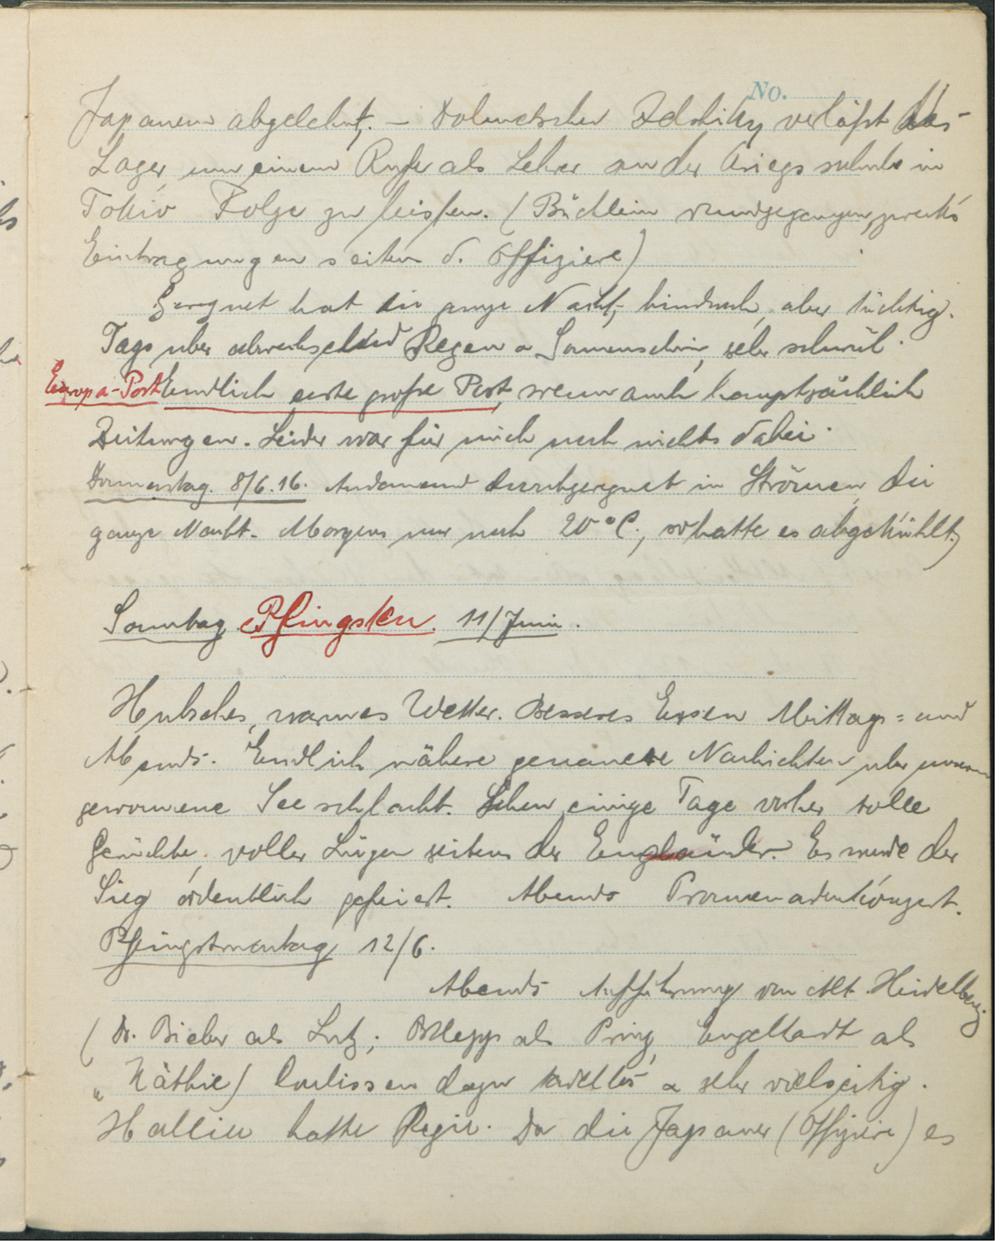 No.
Japanern abgelehnt. – Dolmetscher verläßt das
Lager um einem Rufe als Lehrer an der Kriegsschule in
Tokio Folge zu leisten. (Büchlein rundgegangen, zwecks
Eintragungen seiten d. Offiziere)
Geregnet hat die ganze Nacht hindurch, aber tüchtig.
Tags über abwechselnd Regen u Sonnenschein, sehr schwül.
Europa-Post Endlich erste große Post, wenn auch hauptsächlich
Zeitungen. Leider war für mich noch nichts dabei.
Donnerstag. 8/6.16. Andauernd durchgeregnet in Strömen, die
ganze Nacht. Morgens nur noch 20°C., so hatte es abgekühlt)
Sonntag Pfingsten. 11/Juni.
Hübsches, warmes Wetter. Besseres Essen Mittags= und
Abends. Endlich nähere genauere Nachrichten über unsere
gewonnene Seeschlacht. Schon einige Tage vorher tolle
Gerüchte, voller Lügen seitens der Engländer. Es wurde der
Sieg ordentlich gefeiert. Abends Promenadenkonzert.
Pfingstmontag 12/6.
Abends Aufführung von Alt Heidelberg
(Dr. Bieber als Lutz; als Prinz, Engelhardt als
„Käthie) Coulissen dazu tadellos u sehr vielseitig.
Hallier hatte Regie. Da die Japaner (Offiziere) es